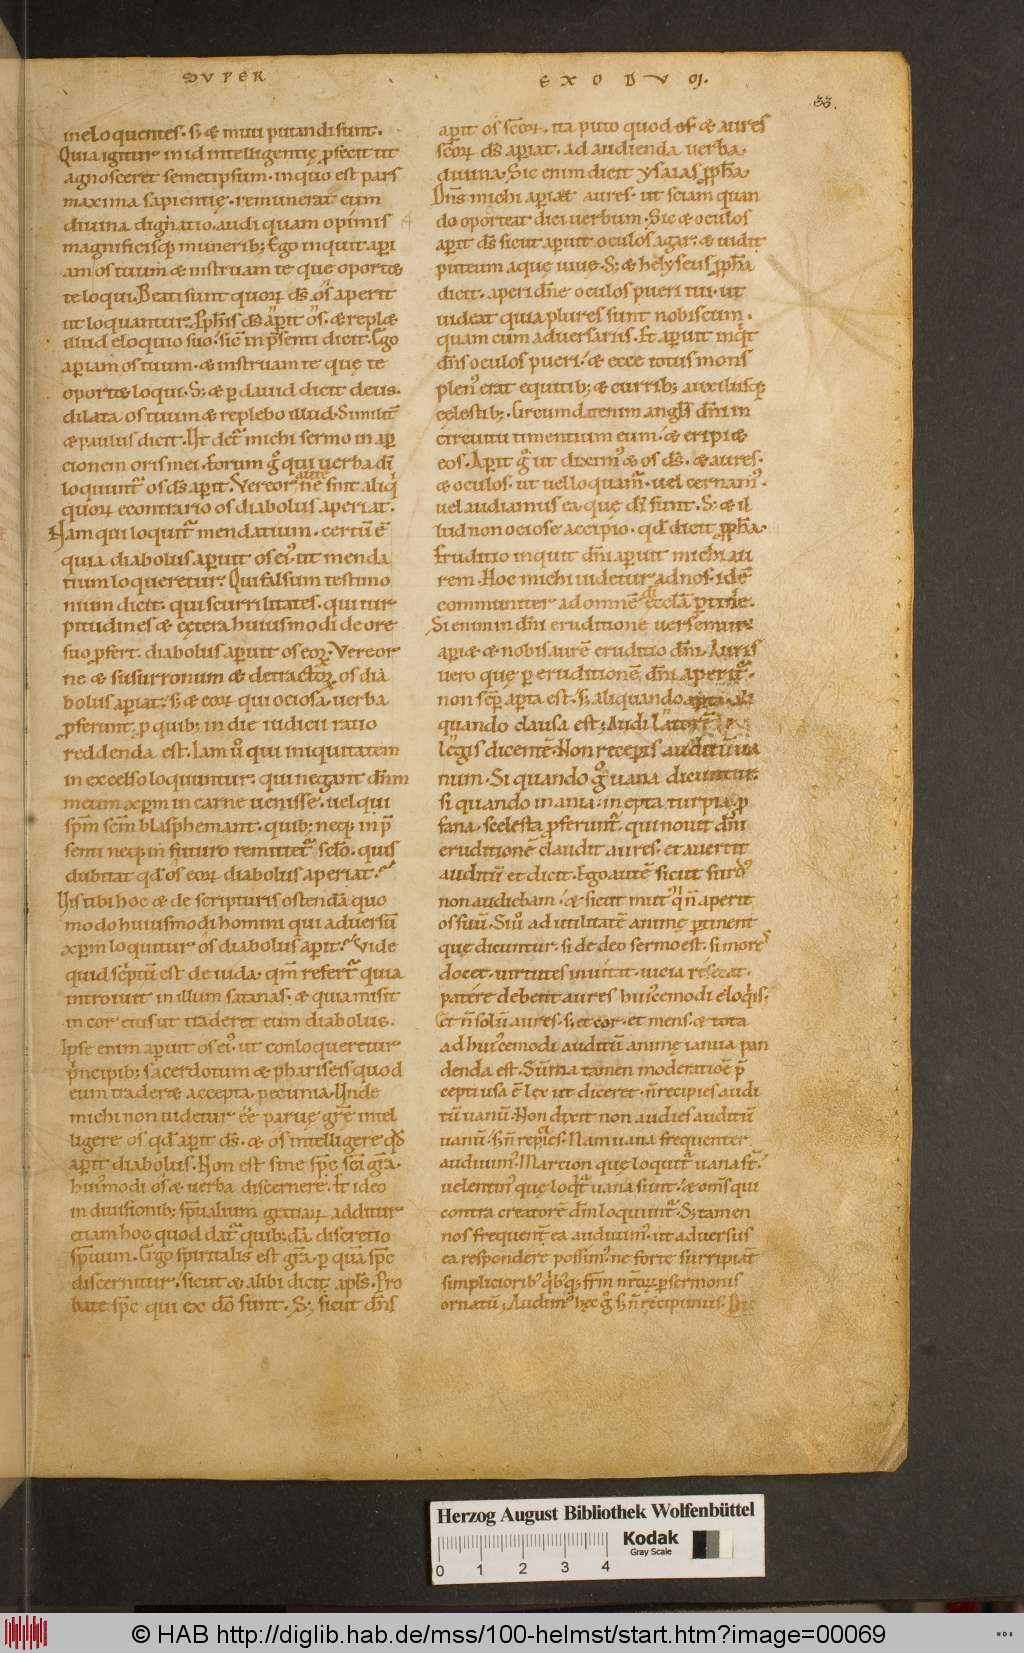 SVPER
EXODVM.
33.
ineloquentes. s; & muti putandi sunt.
Quia igitur in id intelligentię ꝓfecit ut
agnosceret semetipsum. in quo est pars
maxima sapientię. remunerat eum
diuina dignatio. audi quam opimis
magnificisq; munerib; Ego inquit apı
am os tuum & instruam te quę oport&
te loqui. Beati sunt quoꝝ ds̄ os aperit
ut loquantur. Pph̄is ds̄ aꝑit os. & repl&
illud eloquio suo. sic̄ in p̄senti dicit. Ego
aꝑiam os tuum. & instruam te quę te
oport& loqui. S; & ꝑ dauid dicit deus.
dilata os tuum & replebo illud. Similit̄
& paulus dicit. Ut det᷑ michi sermo in aꝑ
cionem oris mei. Eorum g̊ qui uerba dī
loquunt᷑ os ds̄ aꝑit. Vereor aute ne sint aliq̇
quoꝝ econtrario os diabolus aperiat.
Nam qui loquit᷑ mendatium. certū ē
quia diabolus aꝑuit os ei᷒ ut menda
tium loqueretur. Qui falsum testimo
nium dicit. qui scurrilitates. qui tur
pitudines & cętera huiusmodi de ore
suo ꝓfert. diabolus aꝑuit os eoꝝ. Vereor
ne & susurronum & detractoꝝ os dia
bolus aꝑiat. s; & eoꝝ qui ociosa uerba
ꝓferunt. ꝑ quib; in die iudicii ratio
reddenda est. Iam u̇ qui iniquitatem
in excelso loquuntur. qui negant dn̄m
meum xp̄m in carne uenisse. uel qui
sp̄m sc̄m blasphemant. quib; neq; in p̄
senti neq; in futuro remittet᷑ sc̄lo. quis
dubitat qd̄ os eoꝝ diabolus aperiat?
Vis tibi hoc & de scripturis ostendā quo
modo huiusmodi homini qui aduersū
xp̄m loquitur os diabolus aꝑit? Vide
quid sc̄ptū est de iuda. qm̄ refert᷑ quia
introiuit in illum satanas. & quia misit
in cor eius ut traderet eum diabolus.
Ipse enim aꝑuit os ei᷒ ut conloqueretur
p̄ncipib; sacerdotum & phariseis quod
eum trader& accepta pecunia. Unde
michi non uidetur ēē paruę gr̄e intel
ligere os qd̄ aꝑit ds̄. & os intelligere qd̄
aꝑit diabolus. Non est sine sp̄c sc̄i gr̄a.
hui᷒modi os & uerba discernere. Et ideo
in diuisionib; sp̄ualium gratiaꝝ additur
etiam hoc quod dat᷑ quib; dā discretio
sp̄uum. Ergo spiritalis est gr̄a ꝑ quā sp̄c
discernitur. sicut & alibi dicit apl̄s. Pro
bate sp̄c qui ex dō sunt. S; sicut dn̄s
aꝑit os sc̄oꝝ. ita puto quod os & aures
sc̄oꝝ ds̄ aꝑiat. ad audienda uerba
diuina. Sic enim dicit ysaias ꝓph̄a
Dn̄s michi aꝑiat aures. ut sciam quan
do oporteat dici uerbum. Sic & oculos
aꝑit ds̄ sicut aꝑuit oculos agar. & uidit
puteum aquę uiuę. S; & helyseus ꝓph̄a
dicit. aperi dn̄e oculos pueri tui. ut
uideat quia plures sunt nobiscum.
quam cum aduersariis. Et aꝑuit inq̇t
dn̄s oculos pueri. & ecce totus mons
plen᷒ erat equitib; & currib; auxiliisq;
cęlestib;. Circumdat enim angl̄s dn̄i in
circuitu timentium eum. & eripi&
eos. Aꝑit g̊ ut dixim᷒ & os ds̄. & aures.
& oculos. ut uel loquam᷑. uel cernam᷒.
uel audiamus ea quę dī sunt. S; & il
lud non ociose accipio. qd̄ dicit ꝓph̄a
Eruditio inquit dn̄i aꝑuit michi au
rem. Hoc michi uidetur ad nos. idē
communiter ad omnē ęcclā ꝑtine.
Si enim in dn̄i eruditione uersemur.
aꝑi& & nobis aurē eruditio dn̄i. Auris
uero quę ꝑ eruditionē dn̄i aperit᷑.
non semꝑ aꝑta est. s; aliquando aꝑta. ali
quando clausa est. Audi latorē
legis dicentē. Non recepis auditū ua
num. Si quando g̊ uana dicuntur.
si quando inania. inepta turpia. ꝓ
fana. scelesta ꝓferunt᷑. qui nouit dn̄i
eruditionē claudit aures. et auertit
auditū et dicit. Ego autē sicut surd᷒
non audiebam. & sicut mut᷒ q̇ n̄ aperit
os suū. Siu̇ ad utilitatē animę ꝑtinent
quę dicuntur. si de deo sermo est. si mores
docet. uirtutes inuitat. uicia resecat.
patere debent aures hui᷒cemodi eloq̇is.
Et n̄ solū aures. s; et cor. et mens. & tota
ad hui᷒cemodi auditū animę ianua pan
denda est. Sūma tamen moderatiōe p̄
cepti usa ē lex ut diceret. n̄ recipies audi
tū uanū. Non dixit non audies auditū
uanū. s; n̄ recipies. Nam uana frequenter
audium᷒. Marcion quę loquit᷑ uana st̄.
uelentin᷒ quę loq̇t᷑ uana sunt. & om̄s qui
contra creatorē dn̄m loquunt᷑. S; tamen
nos frequent̄ ea audium᷒. ut aduersus
ea respondere possim᷒. ne forte surripiāt
simplicioribus q̇b᷒q; fr̄m nr̄oꝝ ꝑ sermonis
ornatū. Audim᷒ hęc g̊ s; n̄ recipimus.
Herzog August Bibliothek Wolfenbüttel
Kodak
Gray Scale
0 1 2 3 4
© HAB http://diglib.hab.de/mss/100-helmst/start.htm?image=00069
HAB